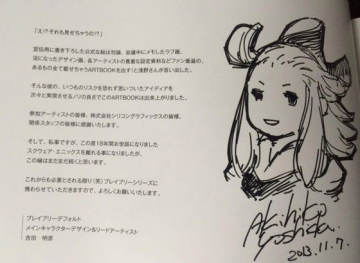 「え!?それも見せちゃうの!?」
宣伝用に書き下ろした公式な絵は勿論、会議中にメモしたラフ画、
没になったデザイン画、各アーティストの貴重な設定資料などファン垂涎の、
あるもの全て載せちゃうARTBOOKを出す!と浅野さんが言い出した。
そんな彼の、いつものリスクを恐れず思いついたアイディアを
次々と実現させるノリの良さでこのARTBOOKは出来上がりました。
参加アーティストの皆様、株式会社シリコンスタジオの皆様、
関係スタッフの皆様に感謝いたします。
そして、私事ですが、この度18年間お世話になりました
スクウェア・エニックスを離れる事になりましたが、
この縁はまだまだ続くと思います。
これからも必要とされる限り(笑)ブレイブリーシリーズに
携わらせていただきますので、よろしくお願いいたします。
ブレイブリーデフォルト
メインキャラクターデザイン&リードアーティスト
吉田 明彦
Akihiko
Yoshida.
2013.11.7.